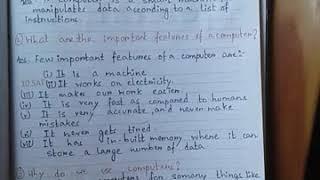 computer is a smart machine
manipulates data according to a list of
instructions.
What are the important features of a computer?
Ans. Few important features of a computer are:-
(i) It is a machine
(ii) It works on electricity.
(iii) It make our work easier.
(iv) It is very fast as compared to humans
(v) It is very accurate, and never make
mistakes
(vi) It never gets tired.
(vii) It has in-built memory where it can
store a large number of data
Why do we use computers?
computers for so many things like